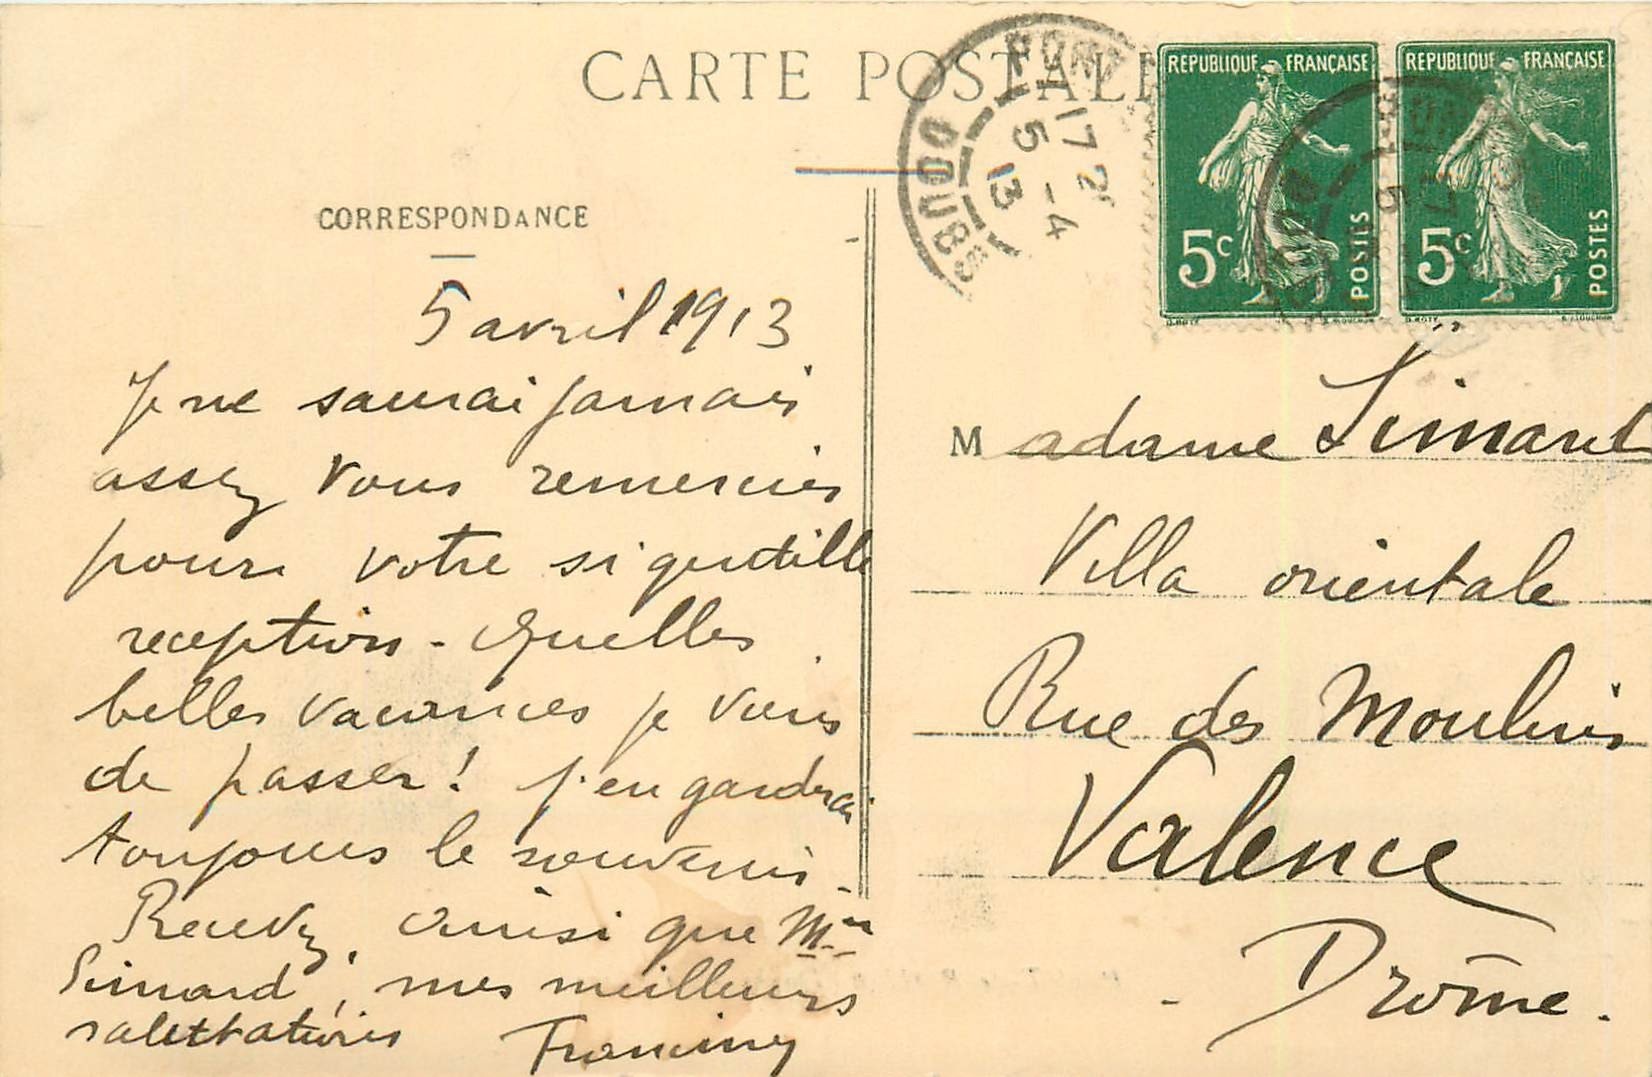 CARTE POSTALE
PONT
17 2
5 - 4
13
DOUBS
REPUBLIQUE FRANÇAISE
5c
POSTES
REPUBLIQUE FRANÇAISE
5c
POSTES
CORRESPONDANCE
5 avril 1913
Je ne saurai jamais
assez vous remercier
pour votre si gentille
reception - Quelles
belles vacances je viens
de passer ! J'en garderai
toujours le souvenir -
Recevez, ainsi que
Simard, mes meilleurs
salutations
Madame Simard
Villa orientale
Rue des Moulins
Valence
- Drôme.